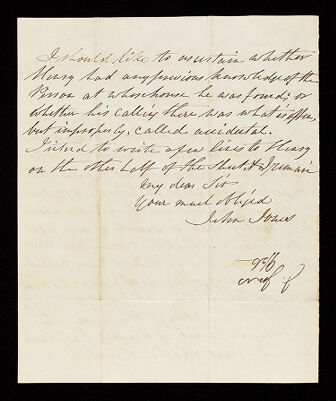 I should like to ascertain whether
Henry had any previous knowledge of the
Person at whose house he was found; or
whether his calling there was what is often,
but improperly, called accidental.
I intend to write a few lines to Henry
on the other half of the sheet, & I remain
My dear Sir
Your much obliged
John Jones
J. Jones